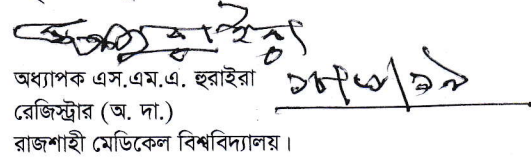 অধ্যাপক এস.এম.এ. হুরাইরা
রেজিস্ট্রার (অ. দা.)
রাজশাহী মেডিকেল বিশ্ববিদ্যালয়।